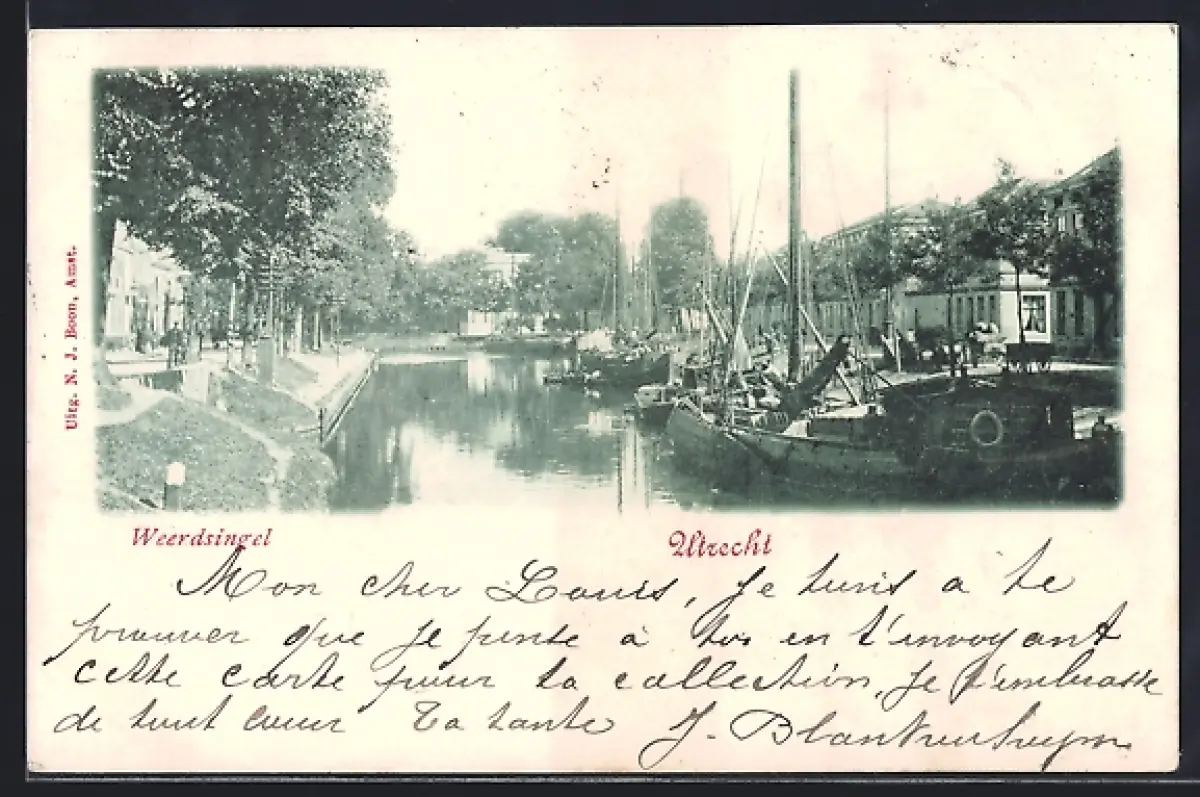 Uitg. N. J. Boon, Amst.
Weerdsingel
Utrecht
Mon cher Louis, Je tiens a te
prouver que je pense à toi en t'envoyant
cette carte pour ta collection, Je t'embrasse
de tout cœur Ta tante J. Blankenheym